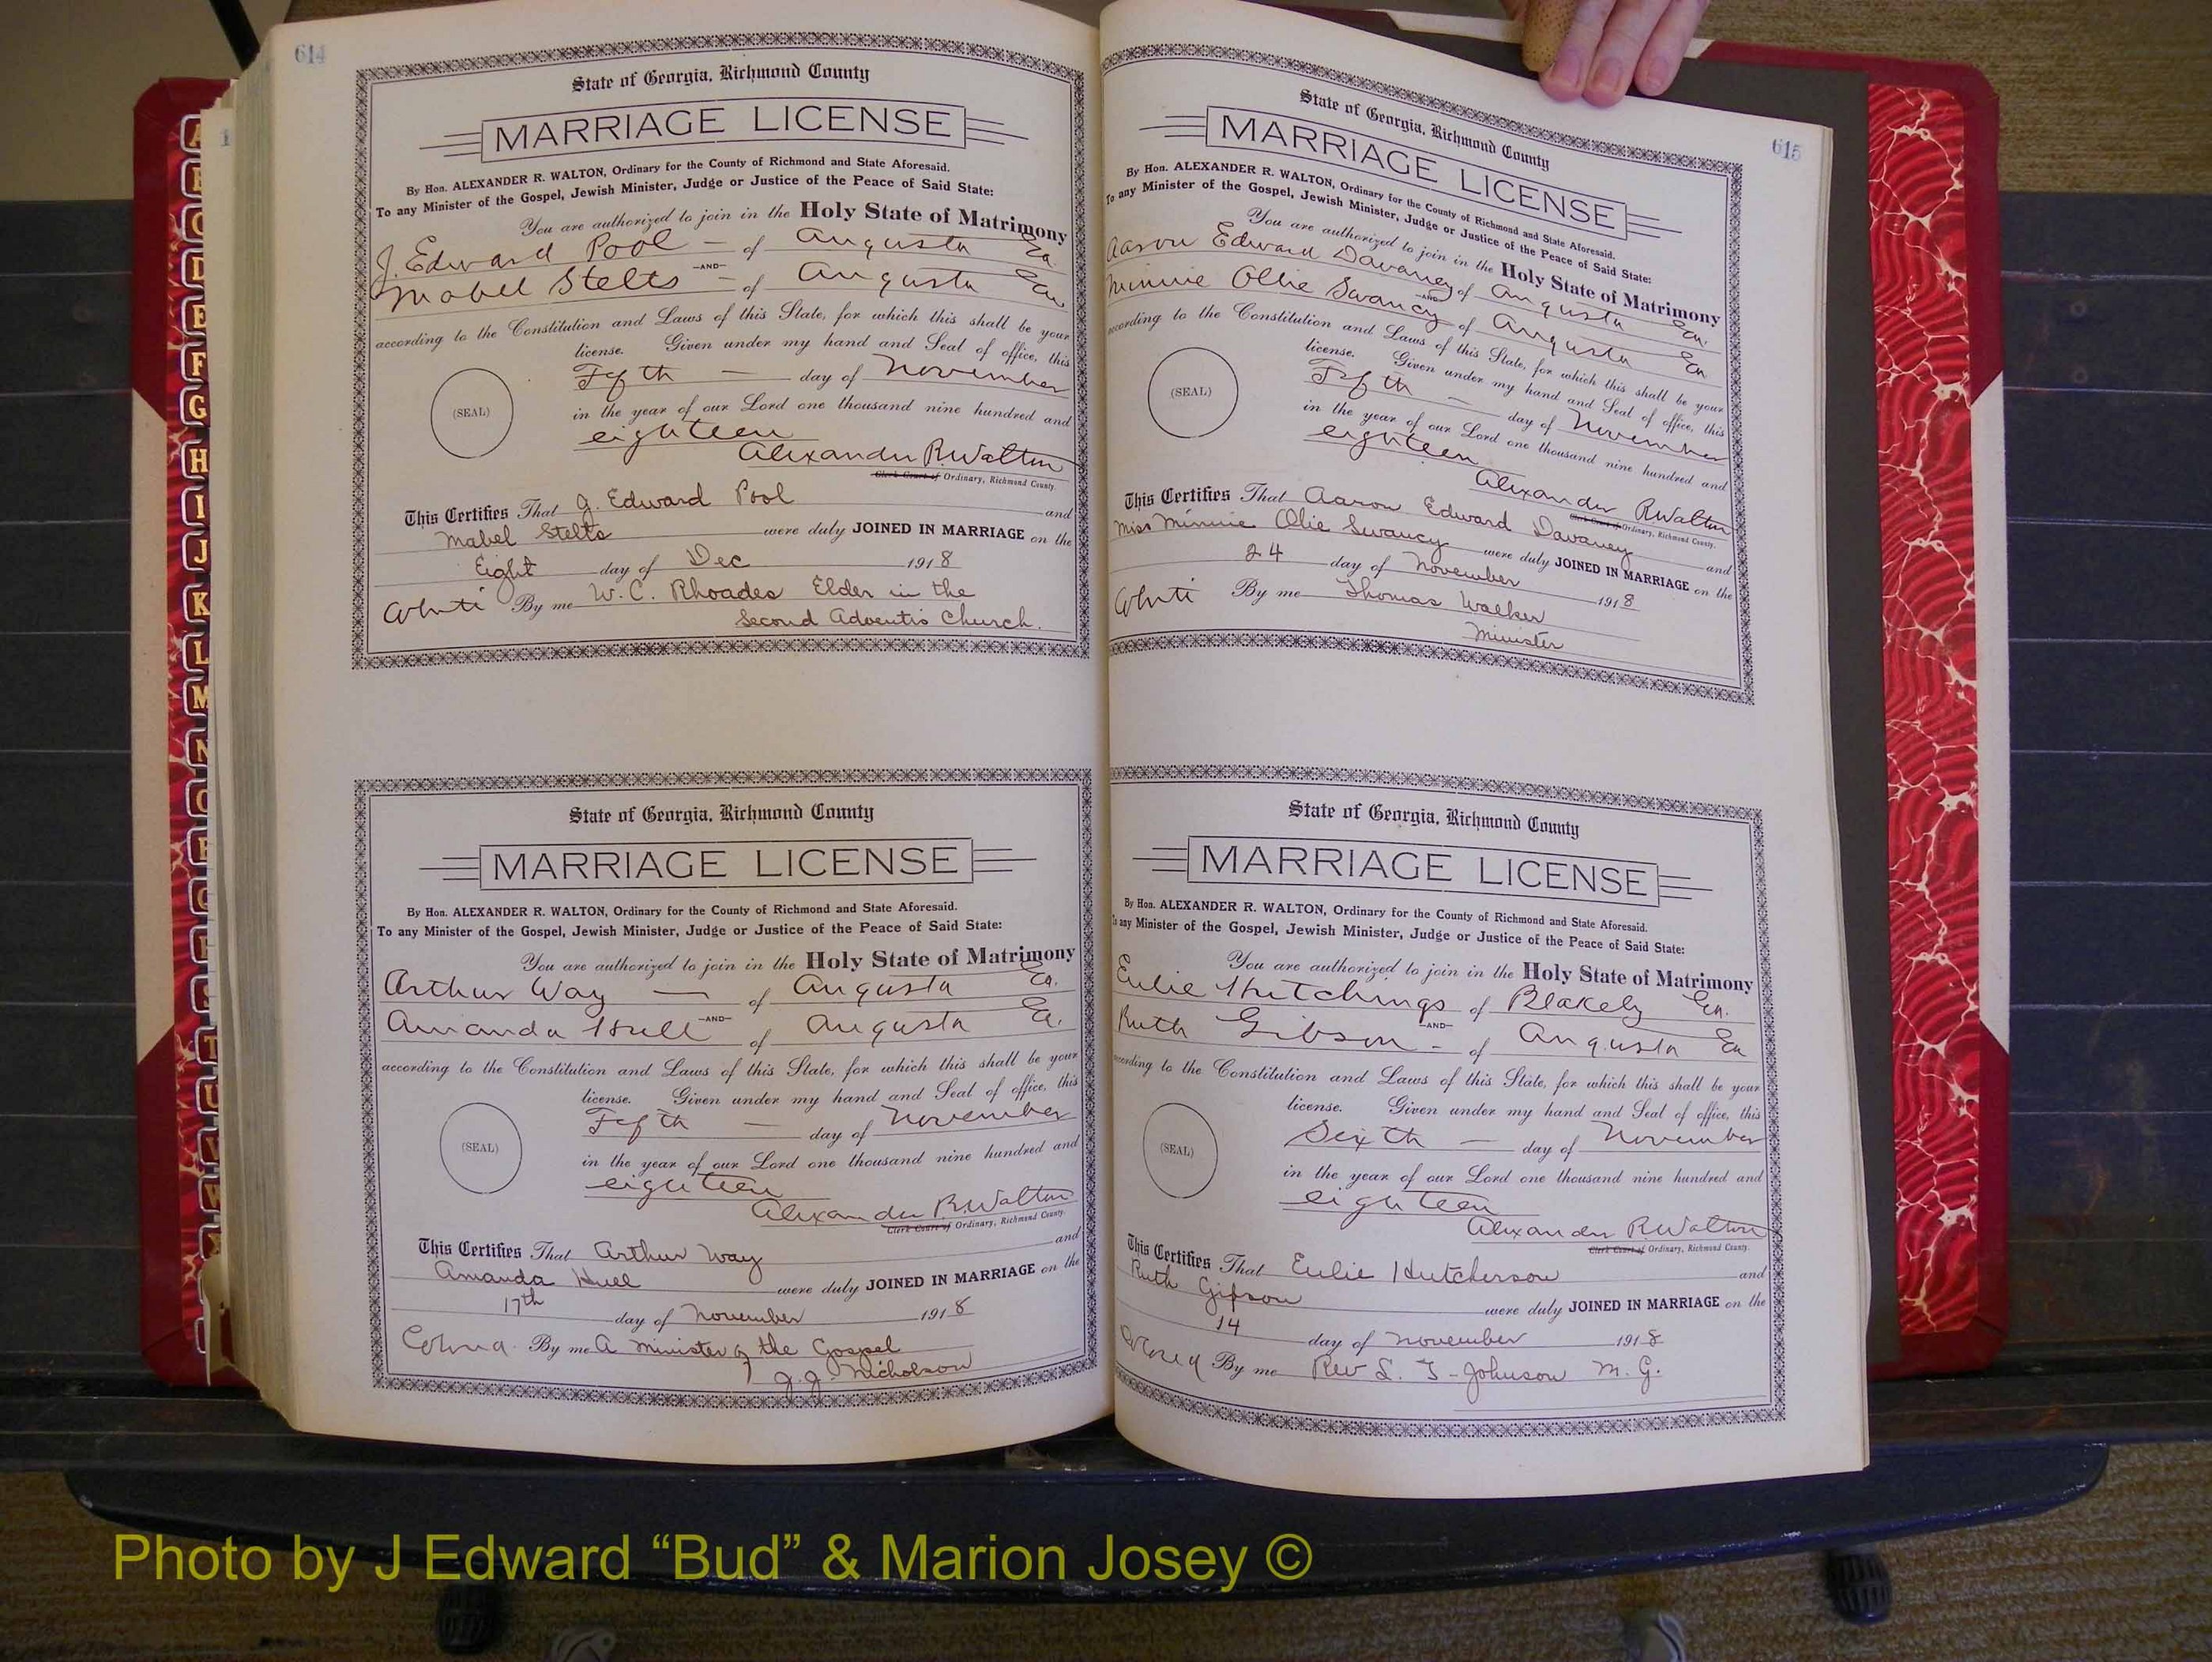 614
State of Georgia, Richmond County
MARRIAGE LICENSE
By Hon. ALEXANDER R. WALTON, Ordinary for the County of Richmond and State Aforesaid.
To any Minister of the Gospel, Jewish Minister, Judge or Justice of the Peace of Said State:
You are authorized to join in the Holy State of Matrimony
J. Edward Pool — of Augusta Ga.
-AND-
Mabel Stelts — of Augusta Ga.
according to the Constitution and Laws of this State, for which this shall be your
license. Given under my hand and Seal of office, this
(SEAL)
Fifth — day of November
in the year of our Lord one thousand nine hundred and
eighteen
Alexander R. Walton
Clerk Court of Ordinary, Richmond County.
This Certifies That J. Edward Pool and
Mabel Stelts were duly JOINED IN MARRIAGE on the
Eight day of Dec 1918
White By me W. C. Rhoades Elder in the
Second Adventis Church.
State of Georgia, Richmond County
MARRIAGE LICENSE
By Hon. ALEXANDER R. WALTON, Ordinary for the County of Richmond and State Aforesaid.
To any Minister of the Gospel, Jewish Minister, Judge or Justice of the Peace of Said State:
You are authorized to join in the Holy State of Matrimony
Arthur Way — of Augusta Ga.
-AND-
Amanda Huell of Augusta Ga.
according to the Constitution and Laws of this State, for which this shall be your
license. Given under my hand and Seal of office, this
(SEAL)
Fifth — day of November
in the year of our Lord one thousand nine hundred and
eighteen
Alexander R. Walton
Clerk Court of Ordinary, Richmond County.
This Certifies That Arthur Way and
Amanda Huell were duly JOINED IN MARRIAGE on the
17th day of November 1918
By me A minister of the Gospel
J. J. Nicholson
615
State of Georgia, Richmond County
MARRIAGE LICENSE
By Hon. ALEXANDER R. WALTON, Ordinary for the County of Richmond and State Aforesaid.
To any Minister of the Gospel, Jewish Minister, Judge or Justice of the Peace of Said State:
You are authorized to join in the Holy State of Matrimony
Aaron Edward Davaney of Augusta Ga.
-AND-
Minnie Ollie Swancy of Augusta Ga
according to the Constitution and Laws of this State, for which this shall be your
license. Given under my hand and Seal of office, this
(SEAL)
Fifth — day of November
in the year of our Lord one thousand nine hundred and
eighteen
Alexander R. Walton
Clerk Court of Ordinary, Richmond County.
This Certifies That Aaron Edward Davaney and
Miss Minnie Olie Swancy were duly JOINED IN MARRIAGE on the
24 day of November 1918
White By me Thomas Walker
Minister
State of Georgia, Richmond County
MARRIAGE LICENSE
By Hon. ALEXANDER R. WALTON, Ordinary for the County of Richmond and State Aforesaid.
To any Minister of the Gospel, Jewish Minister, Judge or Justice of the Peace of Said State:
You are authorized to join in the Holy State of Matrimony
Eulie Hutchings of Blakely Ga.
-AND-
Ruth Gibson — of Augusta Ga
according to the Constitution and Laws of this State, for which this shall be your
license. Given under my hand and Seal of office, this
(SEAL)
Sixth — day of November
in the year of our Lord one thousand nine hundred and
eighteen
Alexander R. Walton
Clerk Court of Ordinary, Richmond County.
This Certifies That Eulie Hutcherson and
Ruth Gipson were duly JOINED IN MARRIAGE on the
14 day of November 1918
By me Rev S. T. Johnson M. G.
Photo by J Edward “Bud” & Marion Josey ©